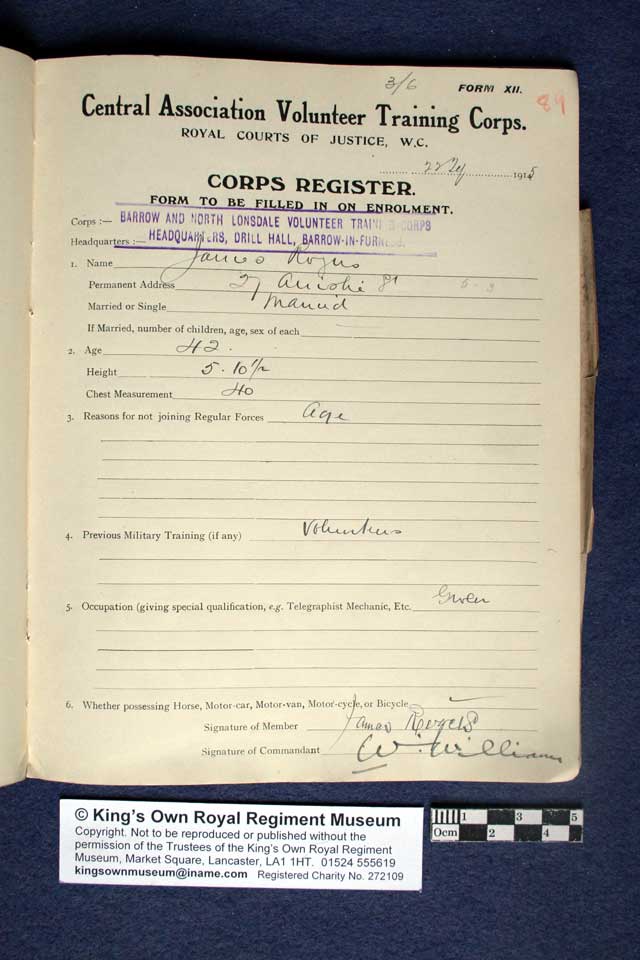 3/6 FORM XII.
89
Central Association Volunteer Training Corps.
ROYAL COURTS OF JUSTICE, W.C.
22 1915
CORPS REGISTER.
FORM TO BE FILLED IN ON ENROLMENT.
Corps :— BARROW AND NORTH LONSDALE VOLUNTEER TRAINING CORPS
Headquarters :— HEADQUARTERS, DRILL HALL, BARROW-IN-FURNESS.
1. Name James Rogers
Permanent Address 27 St
Married or Single Married
If Married, number of children, age, sex of each
2. Age 42.
Height 5. 10 1/2
Chest Measurement 40
3. Reasons for not joining Regular Forces age
4. Previous Military Training (if any) Volunteers
5. Occupation (giving special qualification, e.g. Telegraphist Mechanic, Etc.
6. Whether possessing Horse, Motor-car, Motor-van, Motor-cycle, or Bicycle
Signature of Member James Rogers
Signature of Commandant W. Williams
© King's Own Royal Regiment Museum
Copyright. Not to be reproduced or published without the
permission of the Trustees of the King's Own Royal Regiment
Museum, Market Square, Lancaster, LA1 1HT. 01524 555619
kingsownmuseum@iname.com Registered Charity No. 272109
1 3 5
0cm 2 4